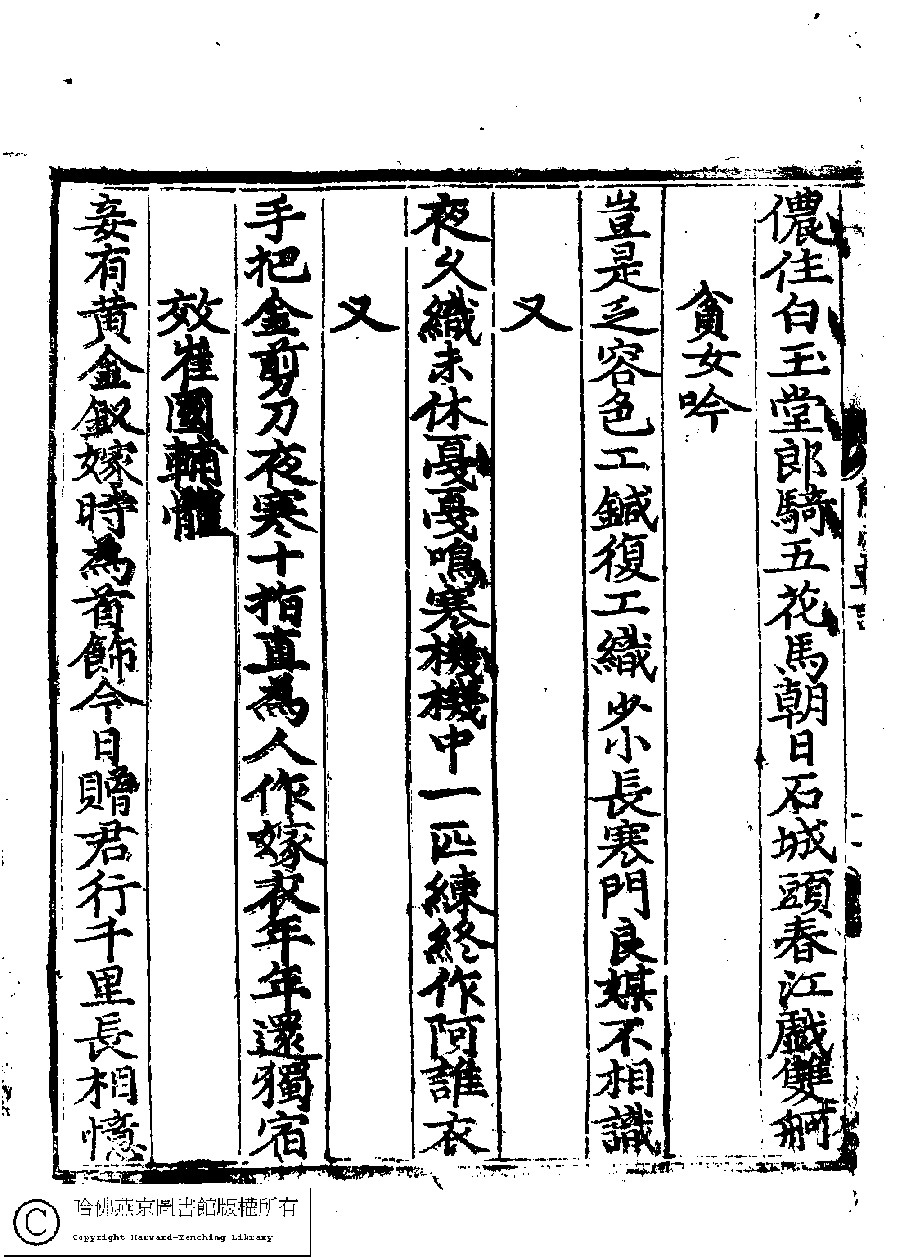 儂住白玉堂郎騎五花馬朝日石城頭春江戱雙舸
貧女吟
豈是乏容色工鍼復工織少小長寒門良媒不相識
又
夜久織未休戞戞鳴寒機機中一匹練終作阿誰衣
又
手把金剪刀夜寒十指直為人作嫁衣年年還獨宿
效崔國輔體
妾有黄金釵嫁時為首飾今日贈君行千里長相憶
哈佛燕京圖書館版權所有
Copyright Harvard-Yenching Library